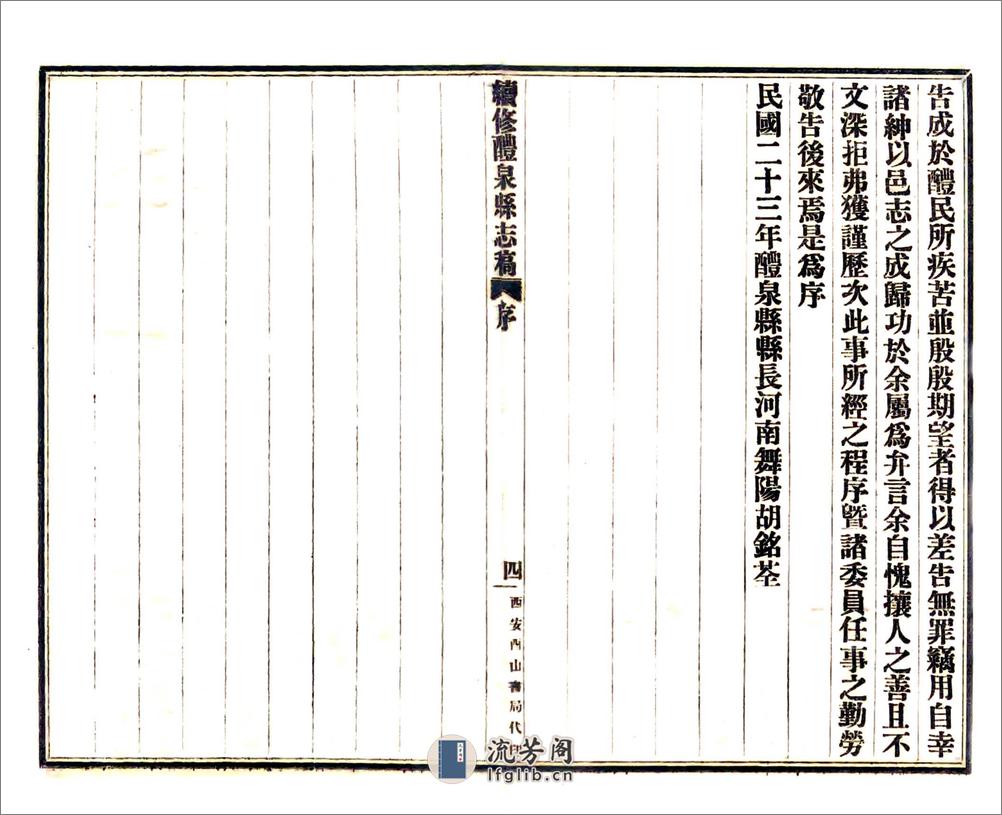 告成於醴民所疾苦並殷殷期望者得以差告無罪竊用自幸
諸紳以邑志之成歸功於余屬爲弁言余自愧攘人之善且不
文深拒弗獲謹歷次此事所經之程序曁諸委員任事之勤勞
敬告後來焉是爲序
民國二十三年醴泉縣縣長河南舞陽胡銘荃
續修醴泉縣志稿
序
四
西安酉山書局代印
流芳阁
lfglib.cn